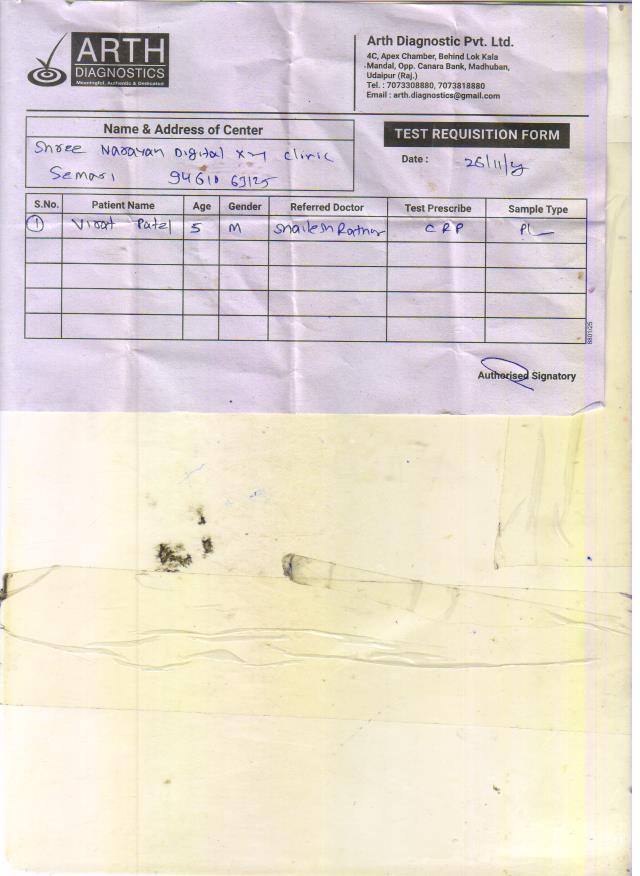 ARTH
DIAGNOSTICS
Meaningful, Authentic & Dedicated
Arth Diagnostic Pvt. Ltd.
4C, Apex Chamber, Behind Lok Kala
Mandal, Opp. Canara Bank, Madhuban,
Udaipur (Raj.)
Tel. : 7073308880, 7073818880
Email : arth.diagnostics@gmail.com
Name & Address of Center
Shree Narayan Digital X-Y Clinic
Semari 94610 63125
TEST REQUISITION FORM
Date : 26/11/
S.No. Patient Name Age Gender Referred Doctor Test Prescribe Sample Type
1 Virat Patel 5 M Shailesh CRP
8801/25
Authorised Signatory